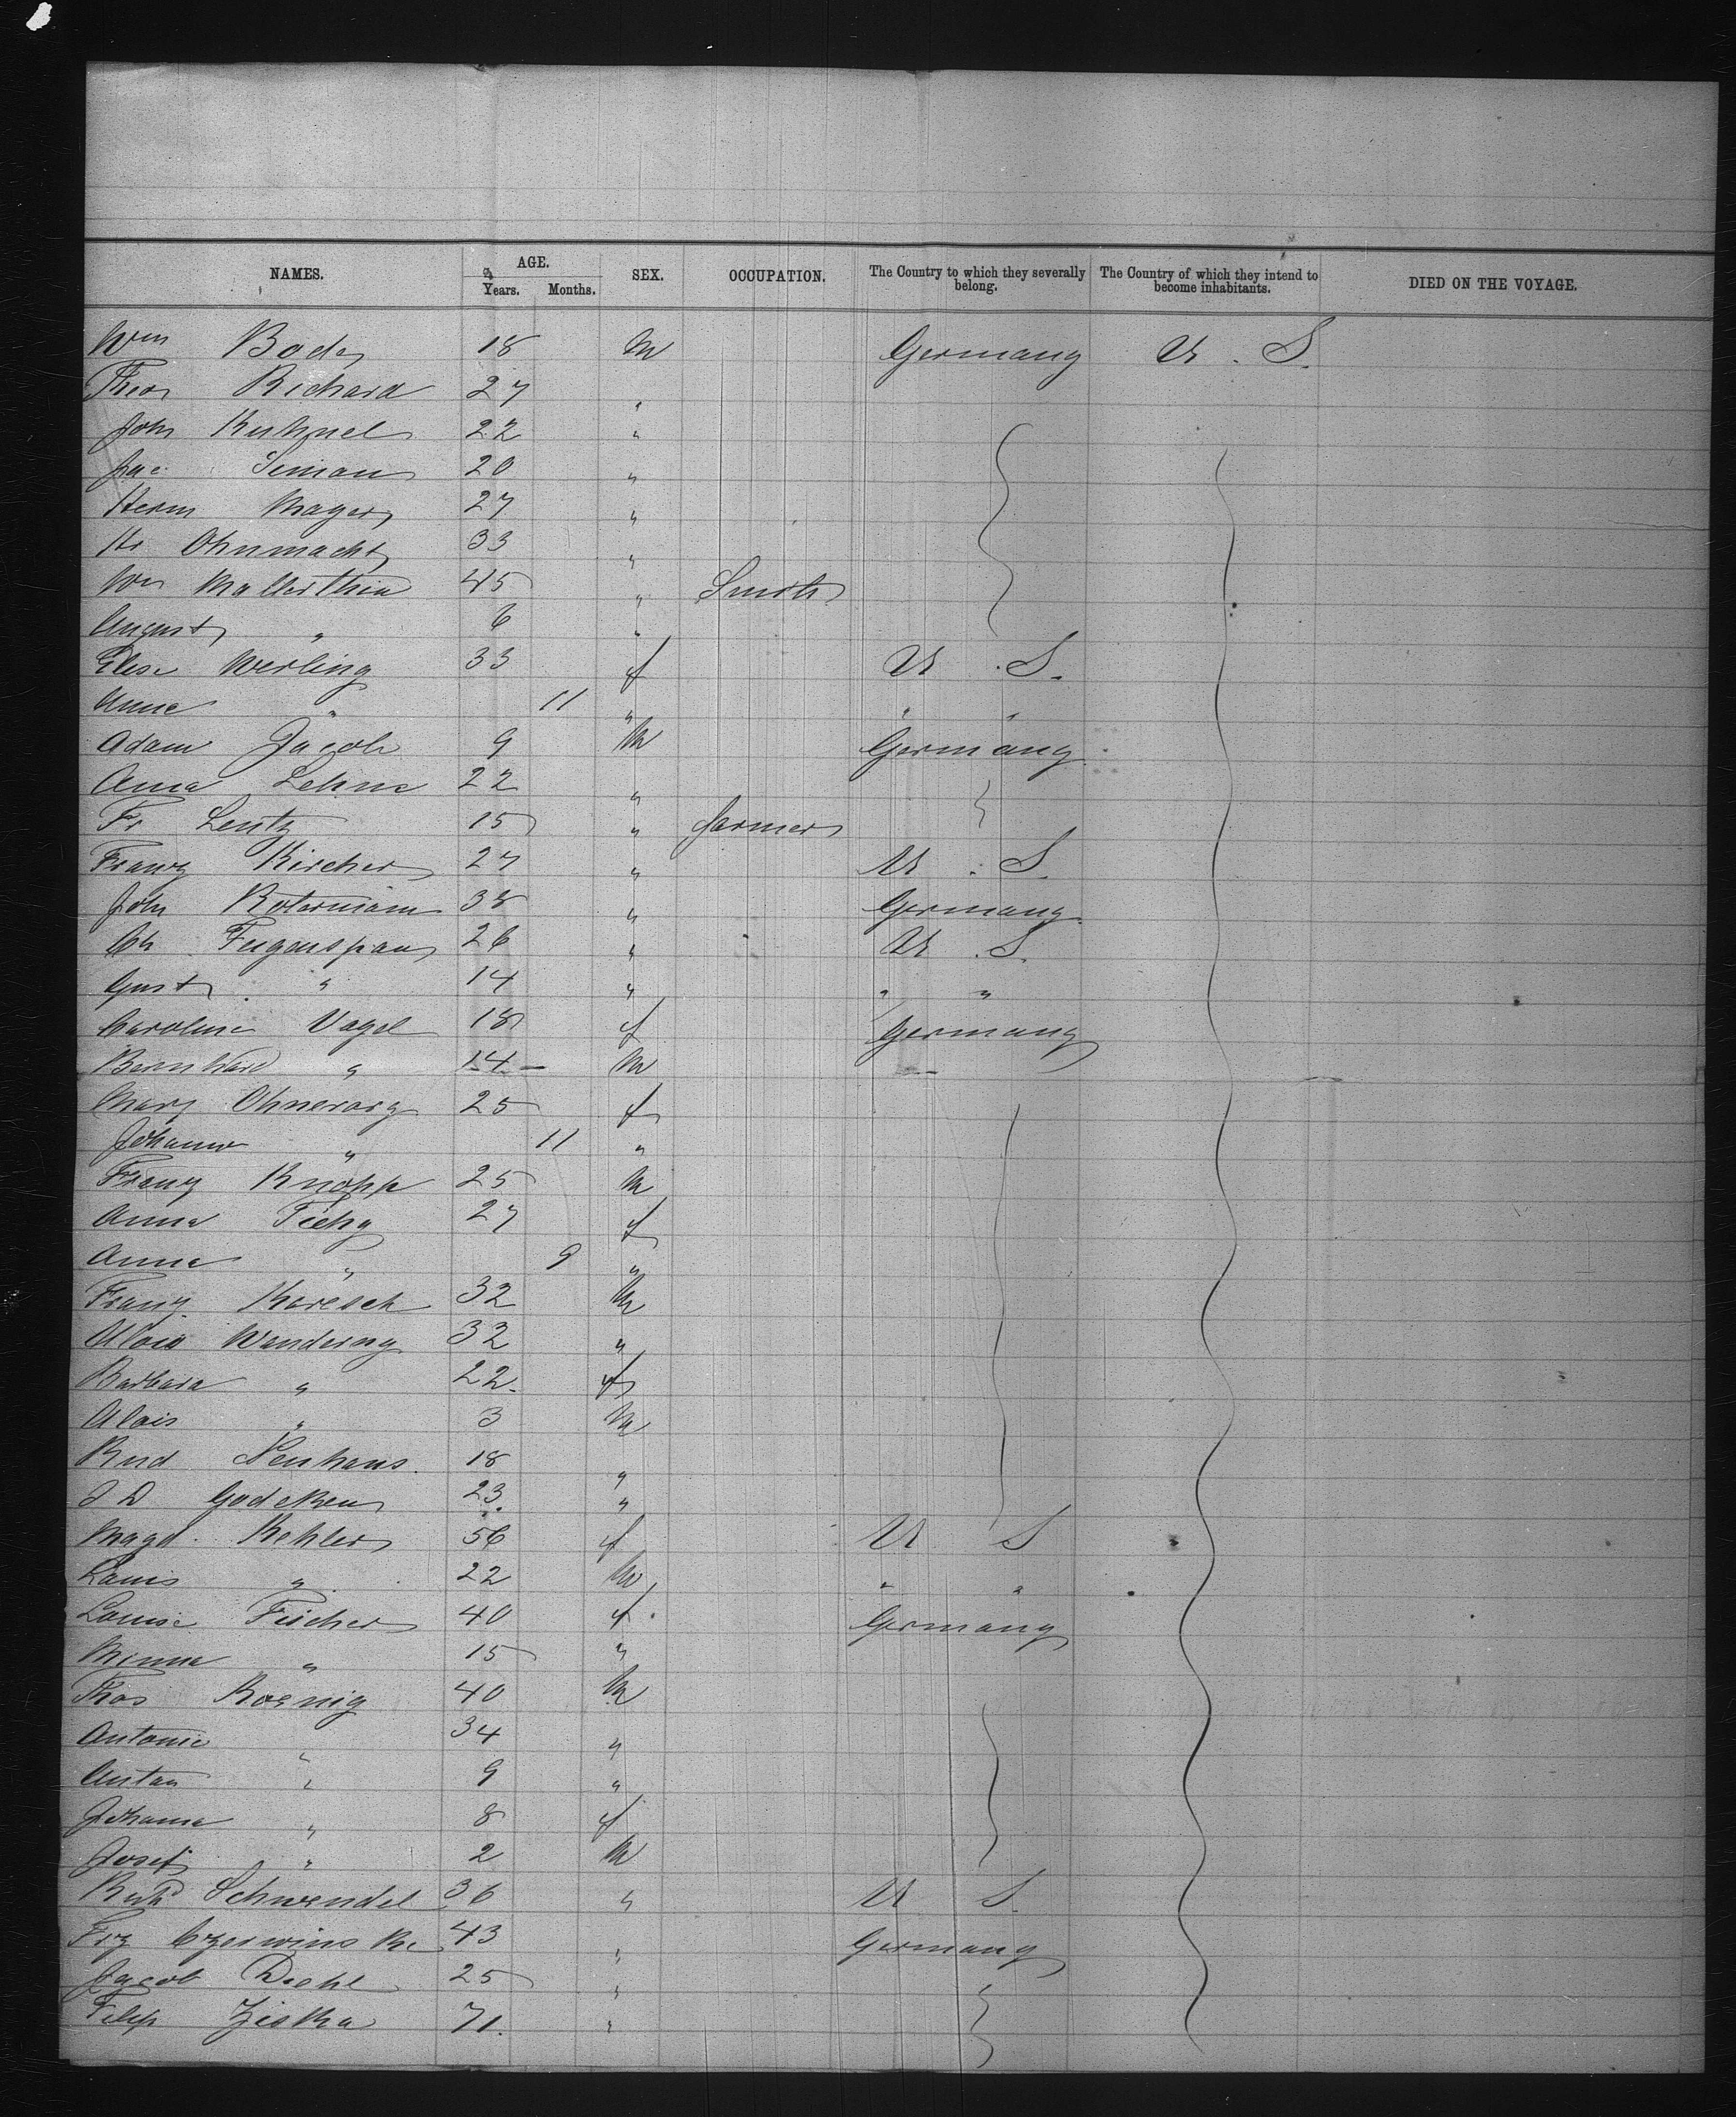 NAMES. AGE. SEX. OCCUPATION. The Country to which they severally belong. The Country of which they intend to become inhabitants. DIED ON THE VOYAGE.
Years. Months.
Wm Bode 18 M Germany U . S.
Theo Richard 27 "
John Kuhnel 22 "
Jac Simon 20 "
Herm Mayer 27 "
Hr Ohnmacht 33 "
Wm Mallerthin 45 " Smith
August " 6 "
Elise Werling 33 f U . S.
Anna " 11 " " "
Adam Jacob 9 M Germany
Anna Lehne 22 "
Fr Lentz 15 " farmer
Franz Kircher 27 " U . S.
John Roterman 38 " Germany
Ch Fugenspan 26 " U . S.
Gust " 14 " " "
Caroline Vogel 18 f Germany
Bernhard " 14 - M
Mary Ohnerorg 25 f
Johann " 11 "
Franz Knopp 25 M
Anna Tichy 27 f
Anna " 9 "
Franz Karesch 32 M
Alois Wanderng 32 "
Barbara " 22. f
Alois " 3 M
Rud Neuhaus. 18 "
J D Godeken 23. "
Magd. Kehler 56 f U S
Louis " 22 M " "
Louise Fischer 40 f Germany
Minna " 15 "
Thos Koenig 40 M
Antonie " 34 "
Anton " 9 "
Johanna " 8 f
Josef " 2 M
Rud Schwendel 36 " U S.
Frz Czerwinske 43 " Germany
Jacob Diehl 25 "
Filip Ziska 71. "